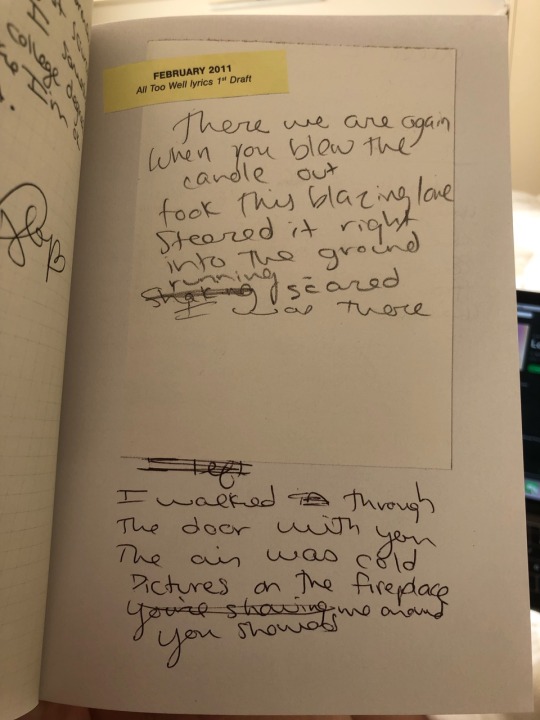 FEBRUARY 2011
All Too Well lyrics 1st Draft
There we are again
when you blew the
candle out
took this blazing love
Steered it right
into the ground
running
shaking scared
I was there
left
I walked through
The door with you
The air was cold
Pictures on the fireplace
You're showing me around
you showed
college